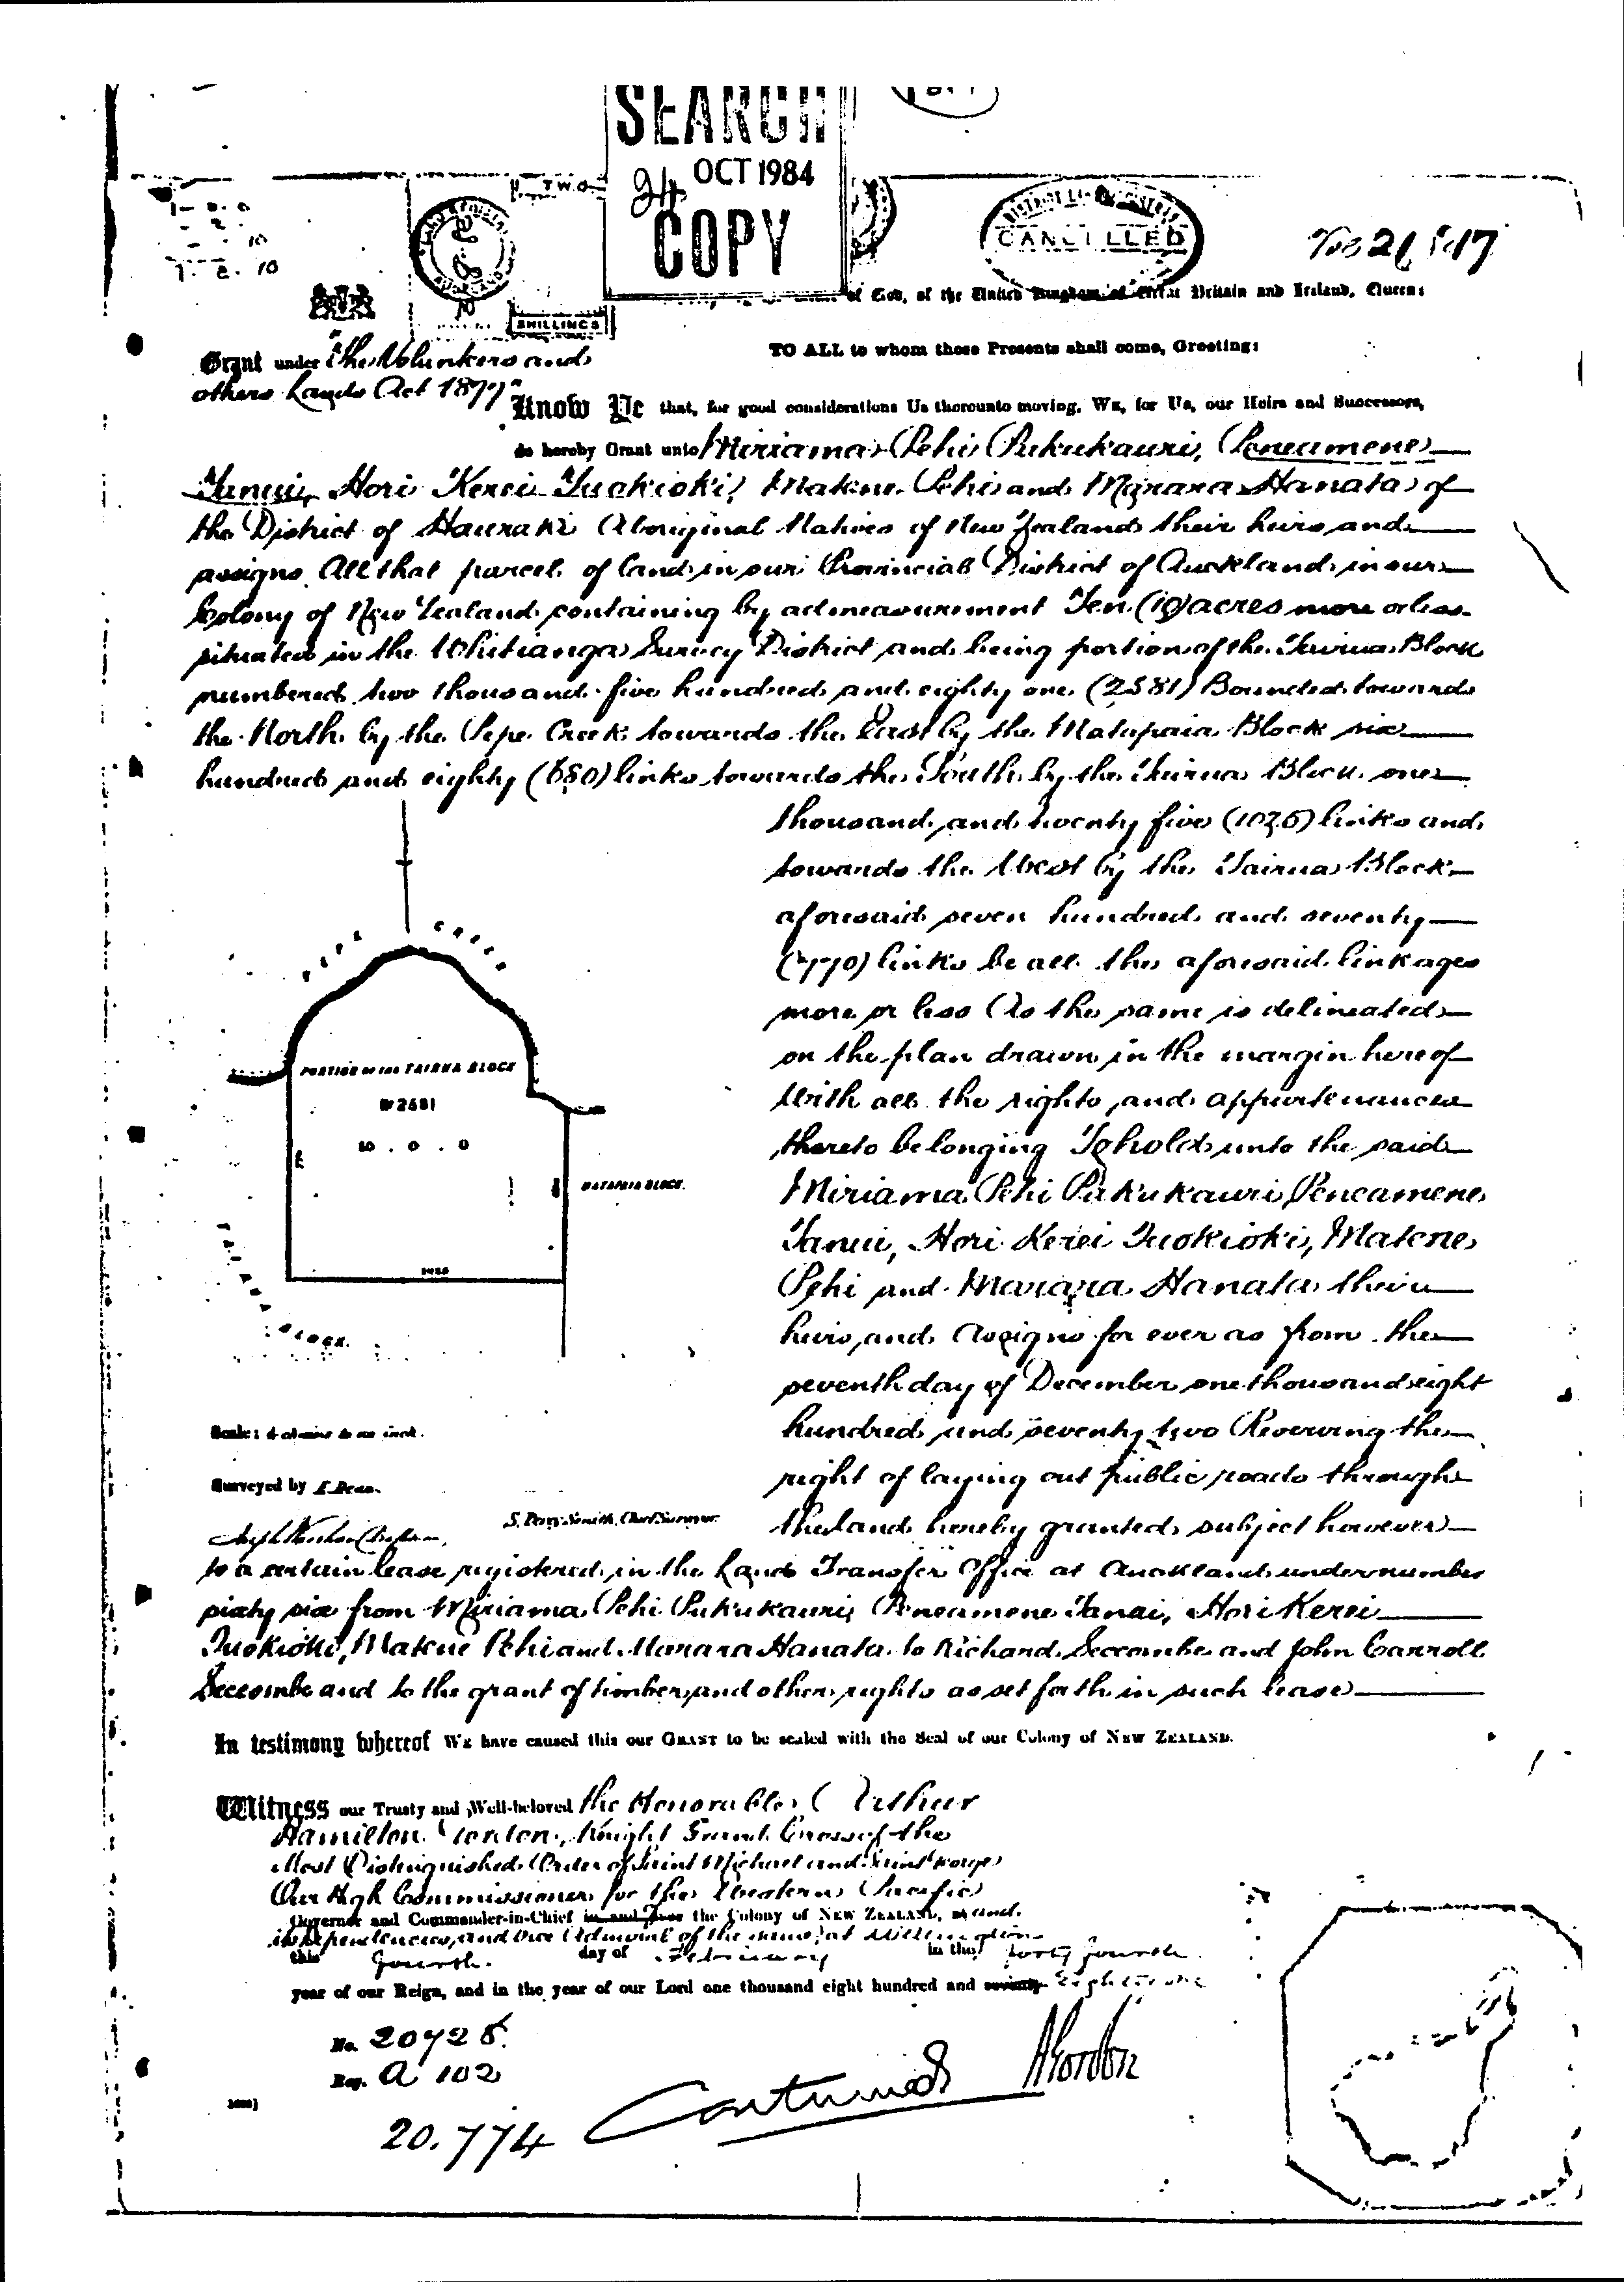 SEARCH
24 OCT 1984
COPY
TWO
CANCELLED
SHILLINGS
of God, of the United Kingdom of Great Britain and Ireland, Queen:
TO ALL to whom these Presents shall come, Greeting:
Grant under "The Volunteers and
others Lands Act 1877"
Know Ye that, for good considerations Us thereunto moving, WE, for Us, our Heirs and Successors,
do hereby Grant unto Miriama Pehi Pukukauri, Peneamene
Tanui, Hori Kerei Tuokioki, Matene Pehi and Marara Hanata of
the District of Hauraki Aboriginal Natives of New Zealand their heirs and
assigns All that parcel of land in our Provincial District of Auckland in our
Colony of New Zealand containing by admeasurement Ten (10) acres more or less
situated in the Whitianga Survey District and being portion of the Tairua Block
numbered two thousand five hundred and eighty one (2581) Bounded towards
the North by the Pepe Creek towards the East by the Matapaia Block six
hundred and eighty (680) links towards the South by the Tairua Block one
thousand and twenty five (1025) links and
towards the West by the Tairua Block
aforesaid seven hundred and seventy
(770) links be all the aforesaid linkages
more or less As the same is delineated
on the plan drawn in the margin hereof
With all the rights and appurtenances
thereto belonging To hold unto the said
Miriama Pehi Pukukauri, Peneamene
Tanui, Hori Kerei Tuokioki, Matene
Pehi and Marara Hanata their
heirs and Assigns for ever as from the
seventh day of December one thousand eight
hundred and seventy two Reserving the
right of laying out public roads through
the land hereby granted subject however
PEPE CREEK
PORTION OF THE TAIRUA BLOCK
No 2581
10 . 0 . 0
MATAPAIA BLOCK
1025
TAIRUA BLOCK.
Scale: 4 chains to an inch.
Surveyed by
S. Percy Smith, Chief Surveyor
to a certain lease registered in the Land Transfer Office at Auckland under number
sixty six from Miriama Pehi Pukukauri, Peneamene Tanui, Hori Kerei
Tuokioki, Matene Pehi and Marara Hanata to Richard Seccombe and John Carroll
Seccombe and to the grant of timber and other rights as set forth in such lease
In testimony whereof WE have caused this our GRANT to be sealed with the Seal of our Colony of NEW ZEALAND.
Witness our Trusty and Well-beloved the Honorable Arthur
Hamilton Gordon, Knight Grand Cross of the
Most Distinguished Order of Saint Michael and Saint George
Our High Commissioner for the Western Pacific
Governor and Commander-in-Chief in and over the Colony of NEW ZEALAND, and
its Dependencies, and Vice Admiral of the same, at Wellington
this Fourth day of February in the forty fourth
year of our Reign, and in the year of our Lord one thousand eight hundred and seventy eighty one
No. 20728
Reg. A 102
AGordon
Continued
20.774